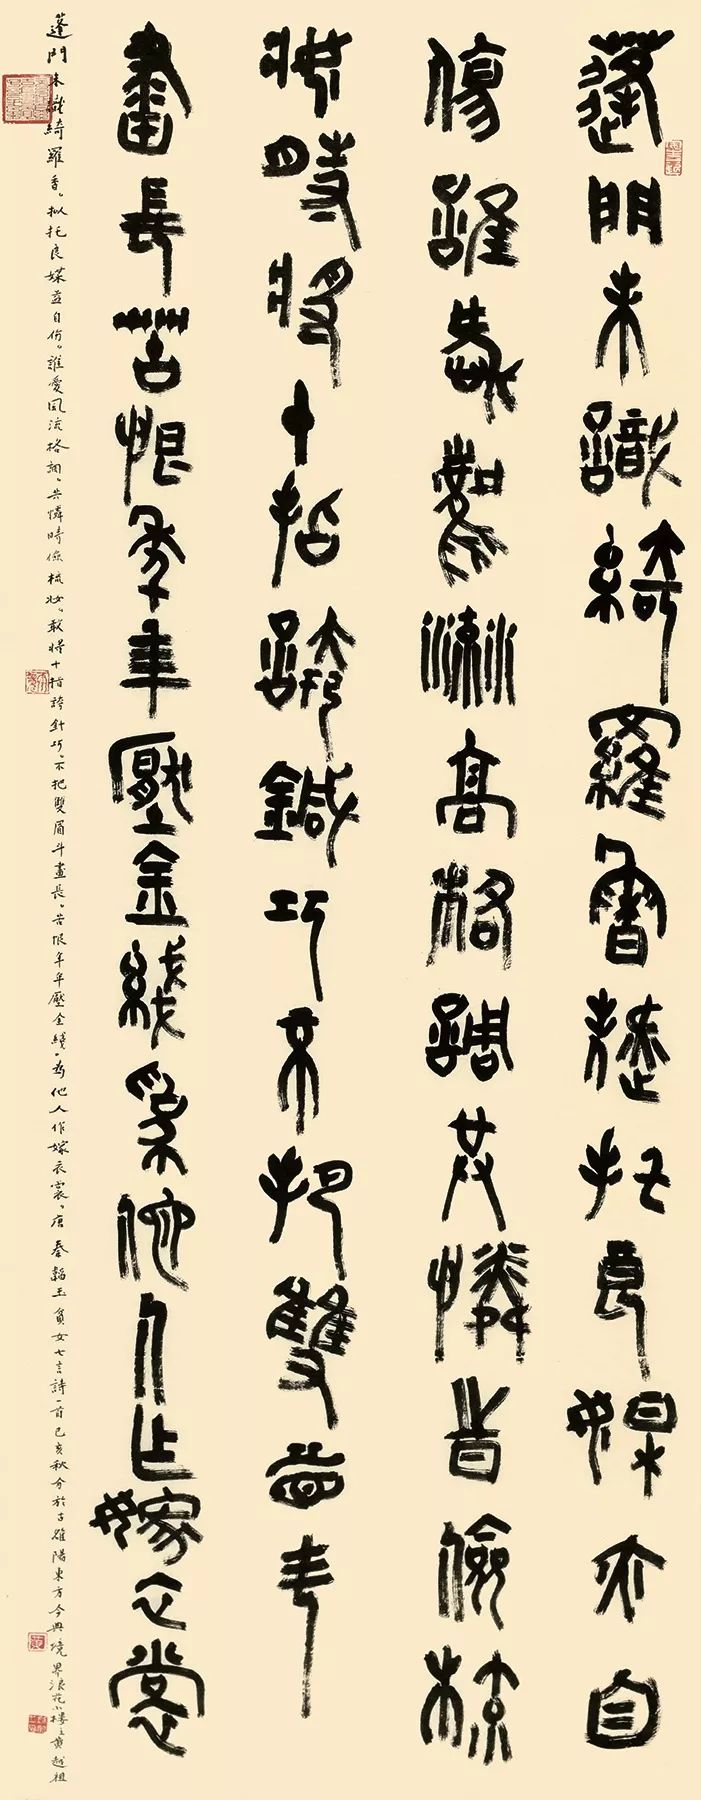 蓬門未識綺羅香擬托良媒亦自
傷誰愛風流高格調共憐時儉梳
妝敢將十指誇鍼巧不把雙眉鬥
畫長苦恨年年壓金綫為他人作嫁衣裳
蓬門未識綺羅香。拟托良媒益自傷。誰愛風流格調、共憐時儉梳妝。敢將十指誇針巧。不把雙眉斗畫長。苦恨年年壓金綫。為他人作嫁衣裳。唐秦韜玉貧女七言詩一首己亥秋分於古雒陽東方今典境界浪花小樓主黄越祖